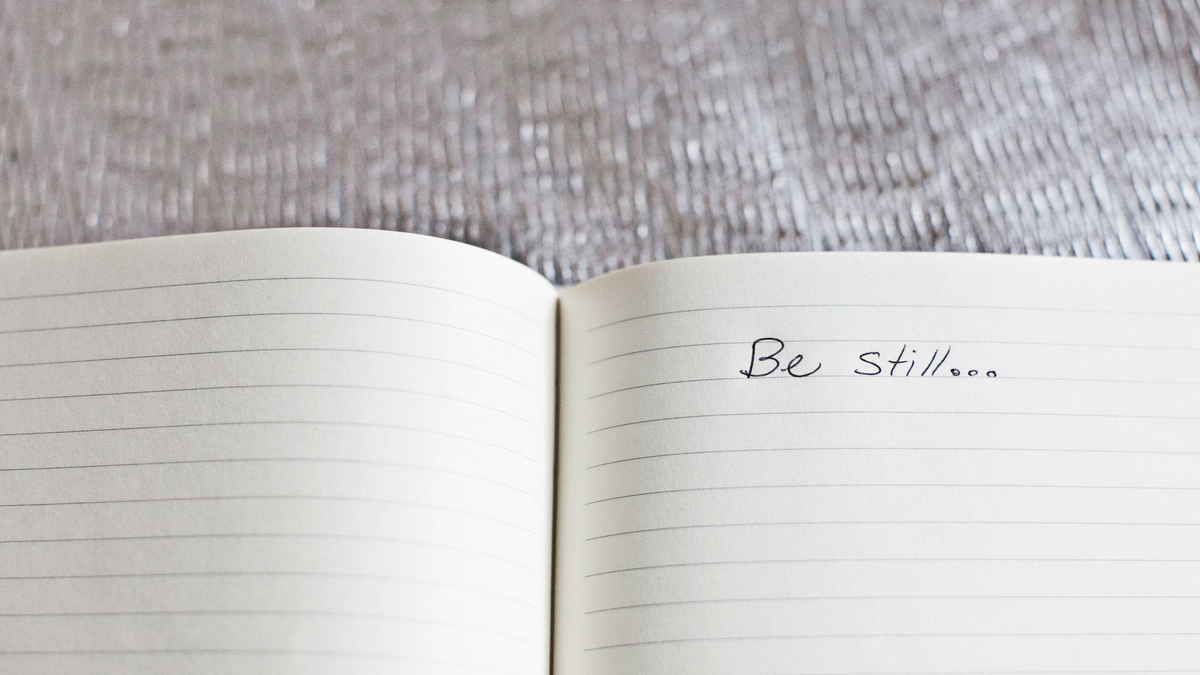 Be still...